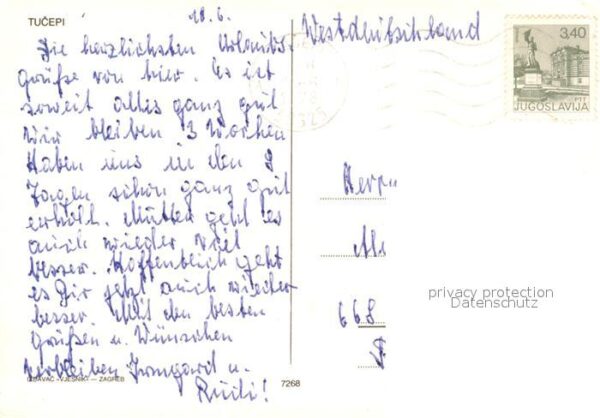 TUČEPI
18.6.
Westdeutschland
Die herzlichsten Urlaubs-
grüße von hier. Es ist
soweit alles ganz gut
Wir bleiben 3 Wochen
Haben uns in den
Tagen schon ganz gut
erholt. Mutter geht es
auch wieder viel
besser. Hoffentlich geht
es Dir jetzt auch wieder
besser. Mit den besten
Grüßen u. Wünschen
verbleiben Irmgard u.
Rudi!
3,40
PTT
JUGOSLAVIJA
Herrn
668
privacy protection
Datenschutz
IZDAVAČ »VJESNIK« — ZAGREB
7268